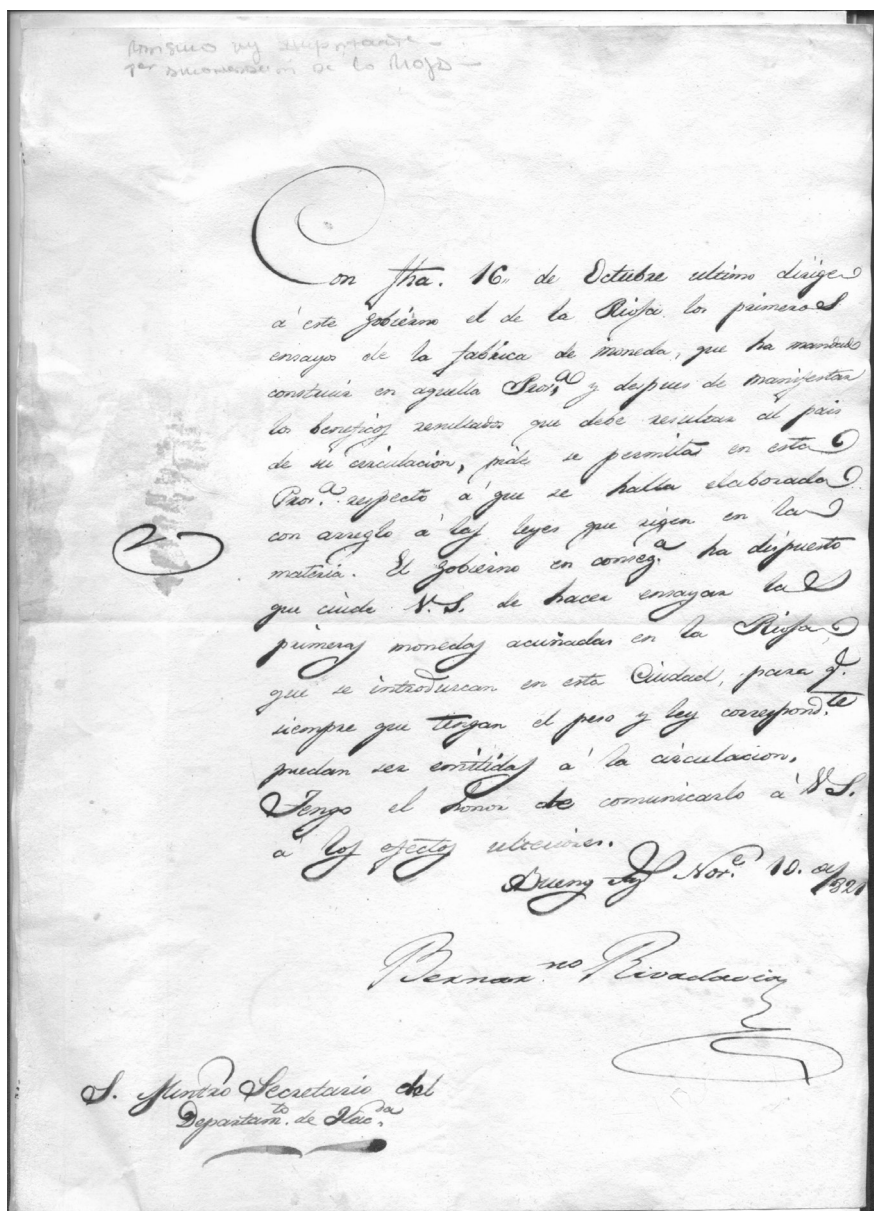 muy importante
1er de la Rioja
Con fha. 16,, de Octubre ultimo dirige
á este Gobierno el de la Rioja los primeros
ensayos de la fabrica de moneda, que ha mandado
construir en aquella Prov.a y despues de manifestar
los beneficos resultados que debe resultar al pais
de su circulacion, pide se permita en esta
Prov.a respecto á que se halla elaborada
con arreglo á las leyes que rigen en la
materia. El Gobierno en conseq.a ha dispuesto
que cuide V.S. de hacer ensayar las
primeras monedas acuñadas en la Rioja,
que se introduscan en esta Ciudad, para q.
siempre que tengan el peso y ley correspond.te
puedan ser emitidas á la circulacion.
Tengo el honor de comunicarlo á V.S.
á los efectos ulteriores.
Buenos Ays Nov.e 10. de 1821
Bernar.no Rivadavia
S. Mintro Secretario del
Departam.to de Hac.da